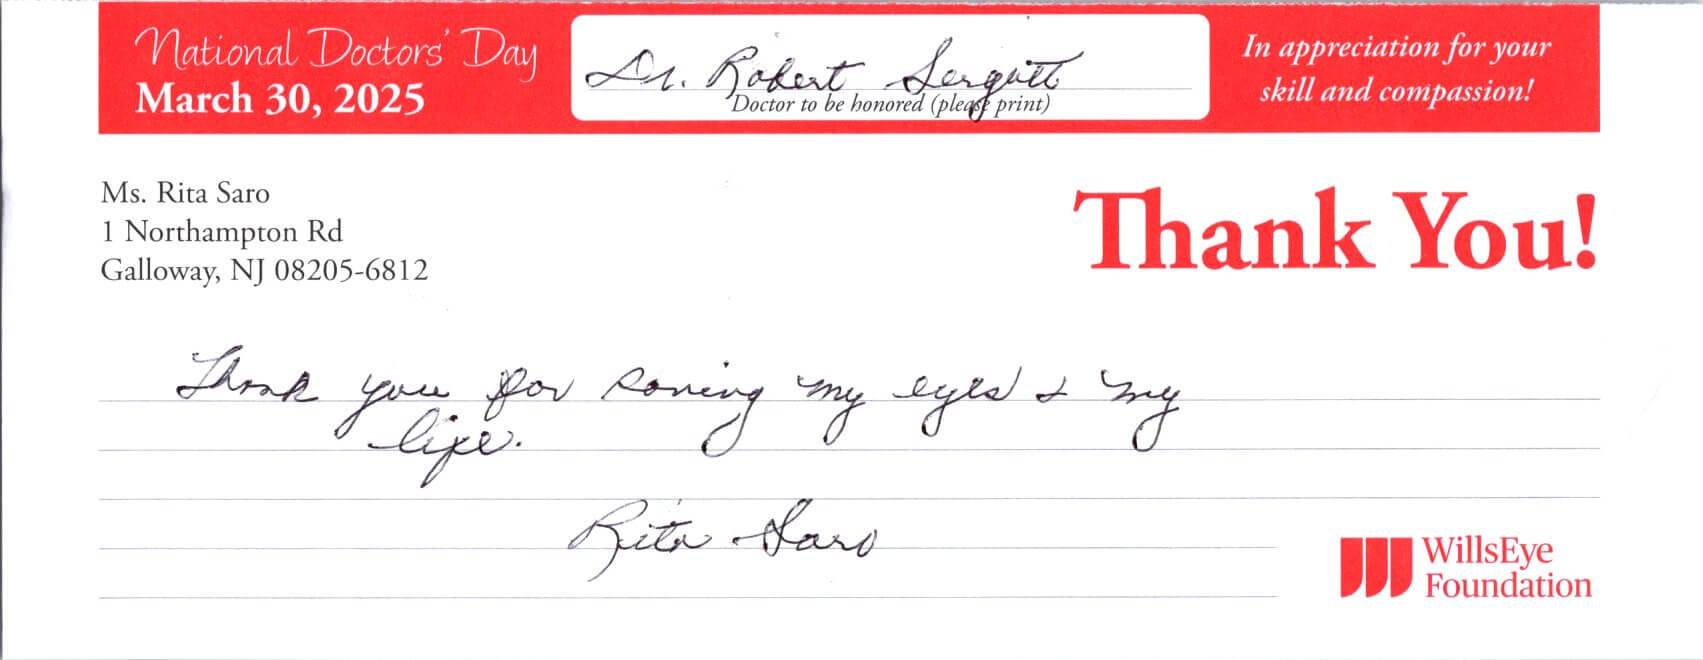 National Doctors' Day
March 30, 2025
Dr. Robert Sergott
Doctor to be honored (please print)
In appreciation for your
skill and compassion!
Ms. Rita Saro
1 Northampton Rd
Galloway, NJ 08205-6812
Thank You!
Thank you for saving my eyes & my
life.
Rita Saro
WillsEye
Foundation